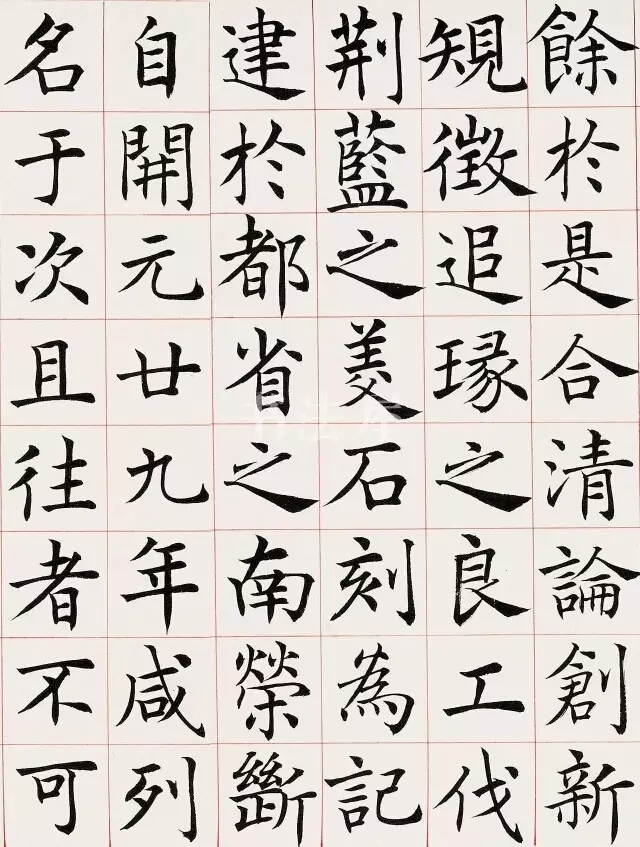 餘於是合清論創新
䂓徵追瑑之良工伐
荆藍之美石刻為記
建於都省之南榮斷
自開元廿九年咸列
名于次且往者不可
书法库